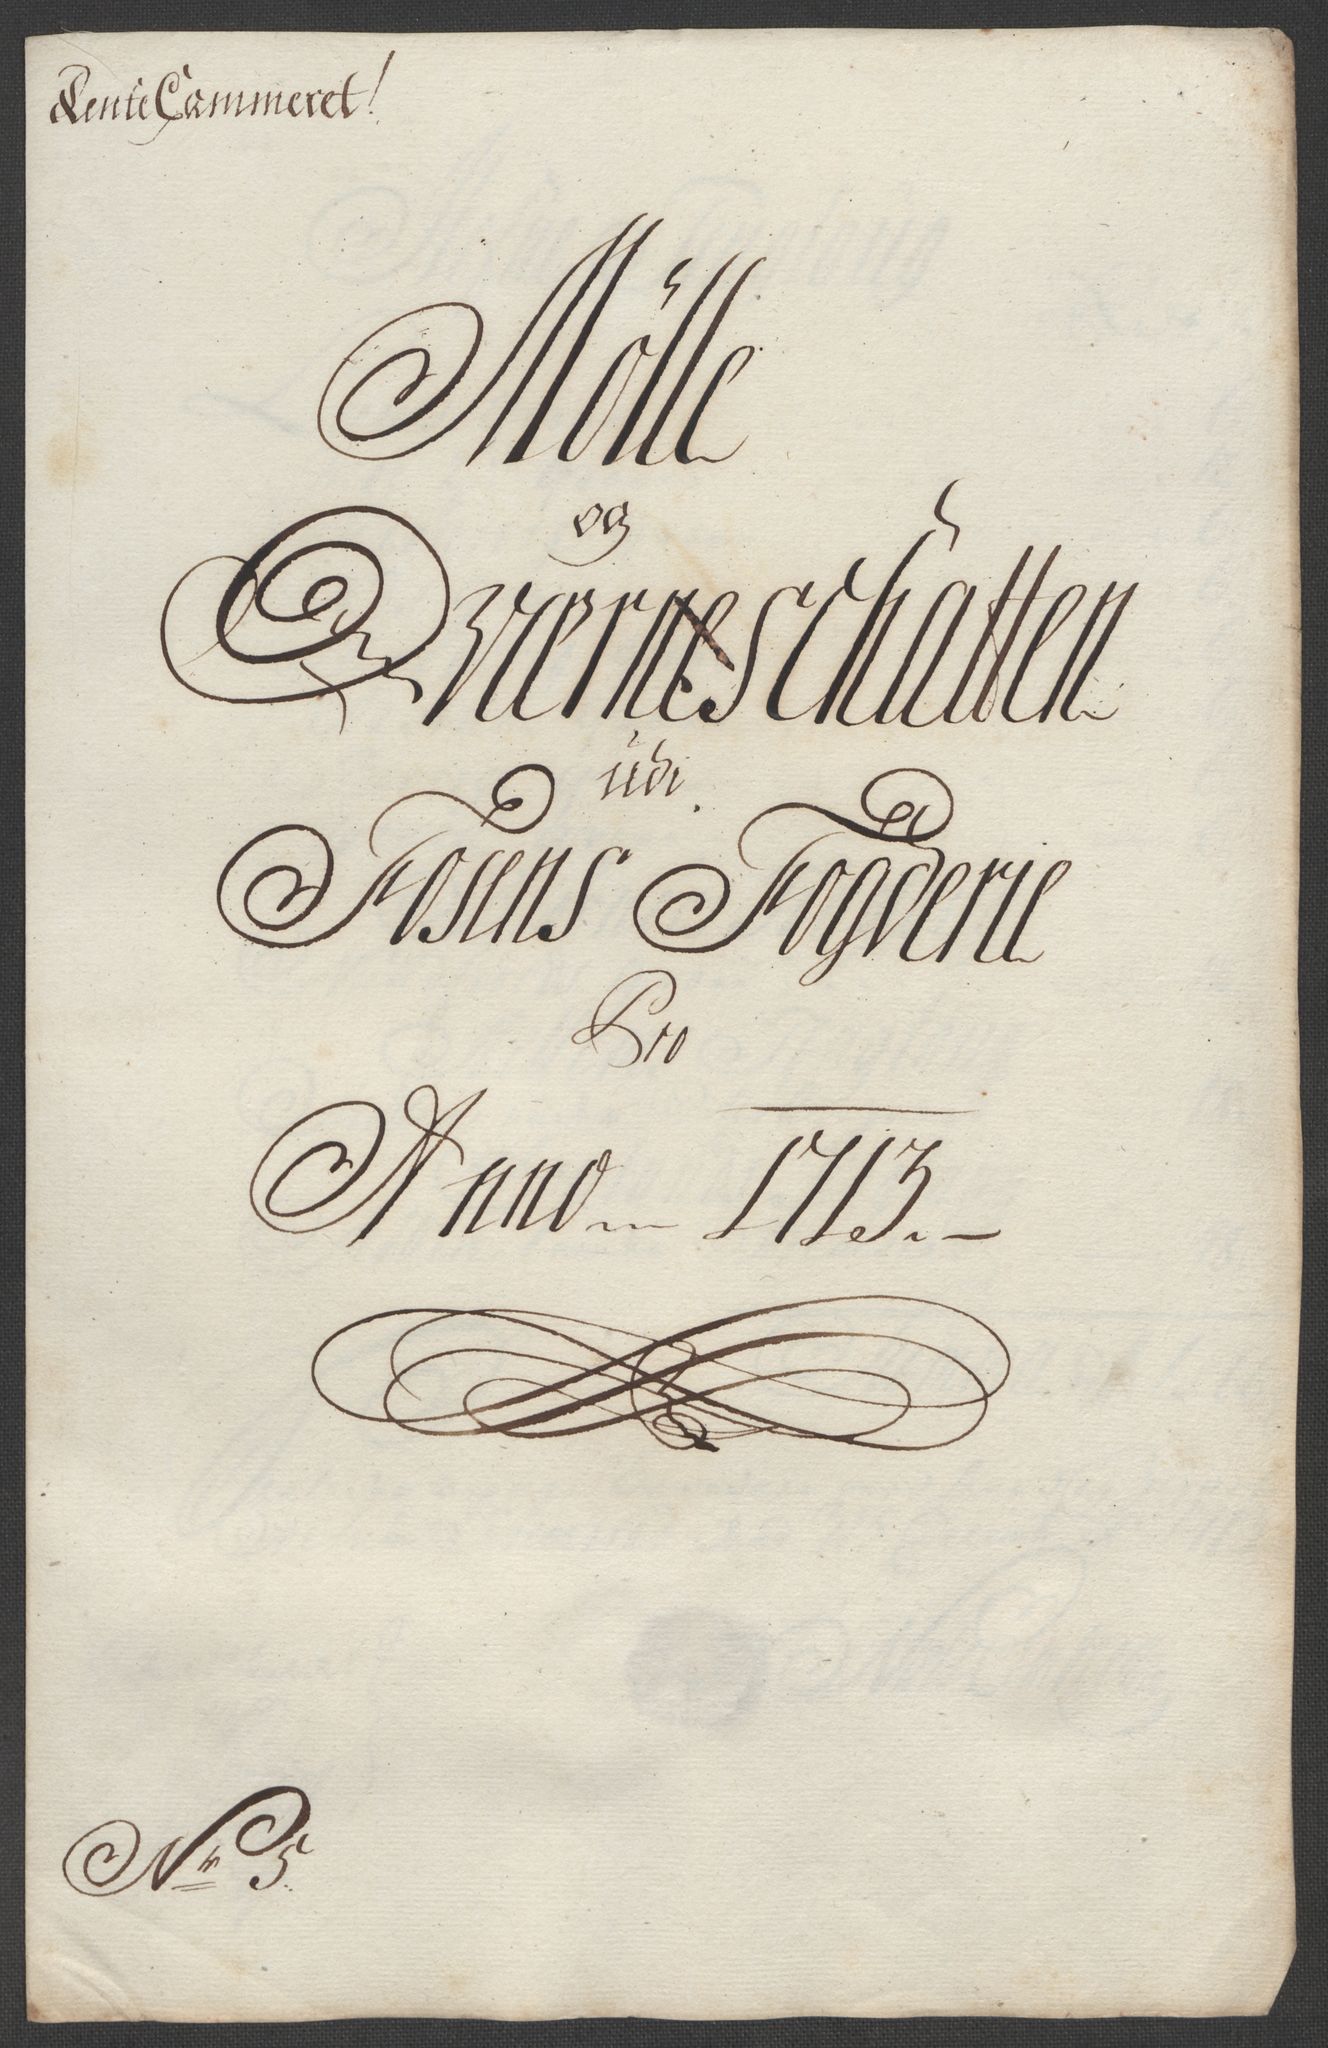 RenteCammeret!
Mölle
og
Qværneschatten
udi
Fosens Fogderie
Pro
Anno 1713.
Nr 5